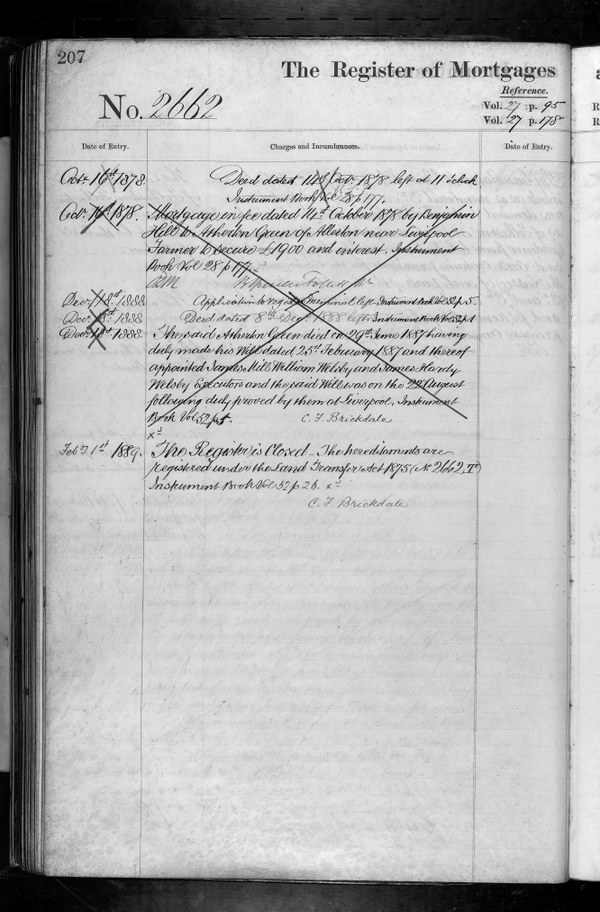 207
The Register of Mortgages
Reference.
No. 2662
Vol. 27 p. 95
Vol. 27 p. 178
Date of Entry.
Charges and Incumbrances.
Date of Entry.
Octr 16th 1878
Deed dated 14th Octr 1878 left at 11 o'clock
Instrument Book Vol 28 p 177.
Octr 16th 1878.
Mortgage in fee dated 14th October 1878 by Benjamin
Hall to Atherton Green of Allerton near Liverpool
Farmer to secure £1900 and interest. Instrument
Book Vol 28 p 177.
Decr 18th 1888
Application to register left Instrument Book Vol 52 p 5.
Decr 18th 1888
Deed dated 8th Decr 1888 left Instrument Book Vol 52 p 1
Decr 18th 1888.
The said Atherton Green died on 29th June 1887 having
duly made his Will dated 25th February 1887 and thereof
appointed James Mill William Welsby and James Hardy
Welsby Executors and the said Will was on the 22nd August
following duly proved by them at Liverpool, Instrument
Book Vol 52 p 1.
C. F. Brickdale
Feby 1st 1889.
The Register is Closed – The hereditaments are
registered under the Land Transfer Act 1875 (No 2662, T)
Instrument Book Vol 52 p 26.
C. F. Brickdale